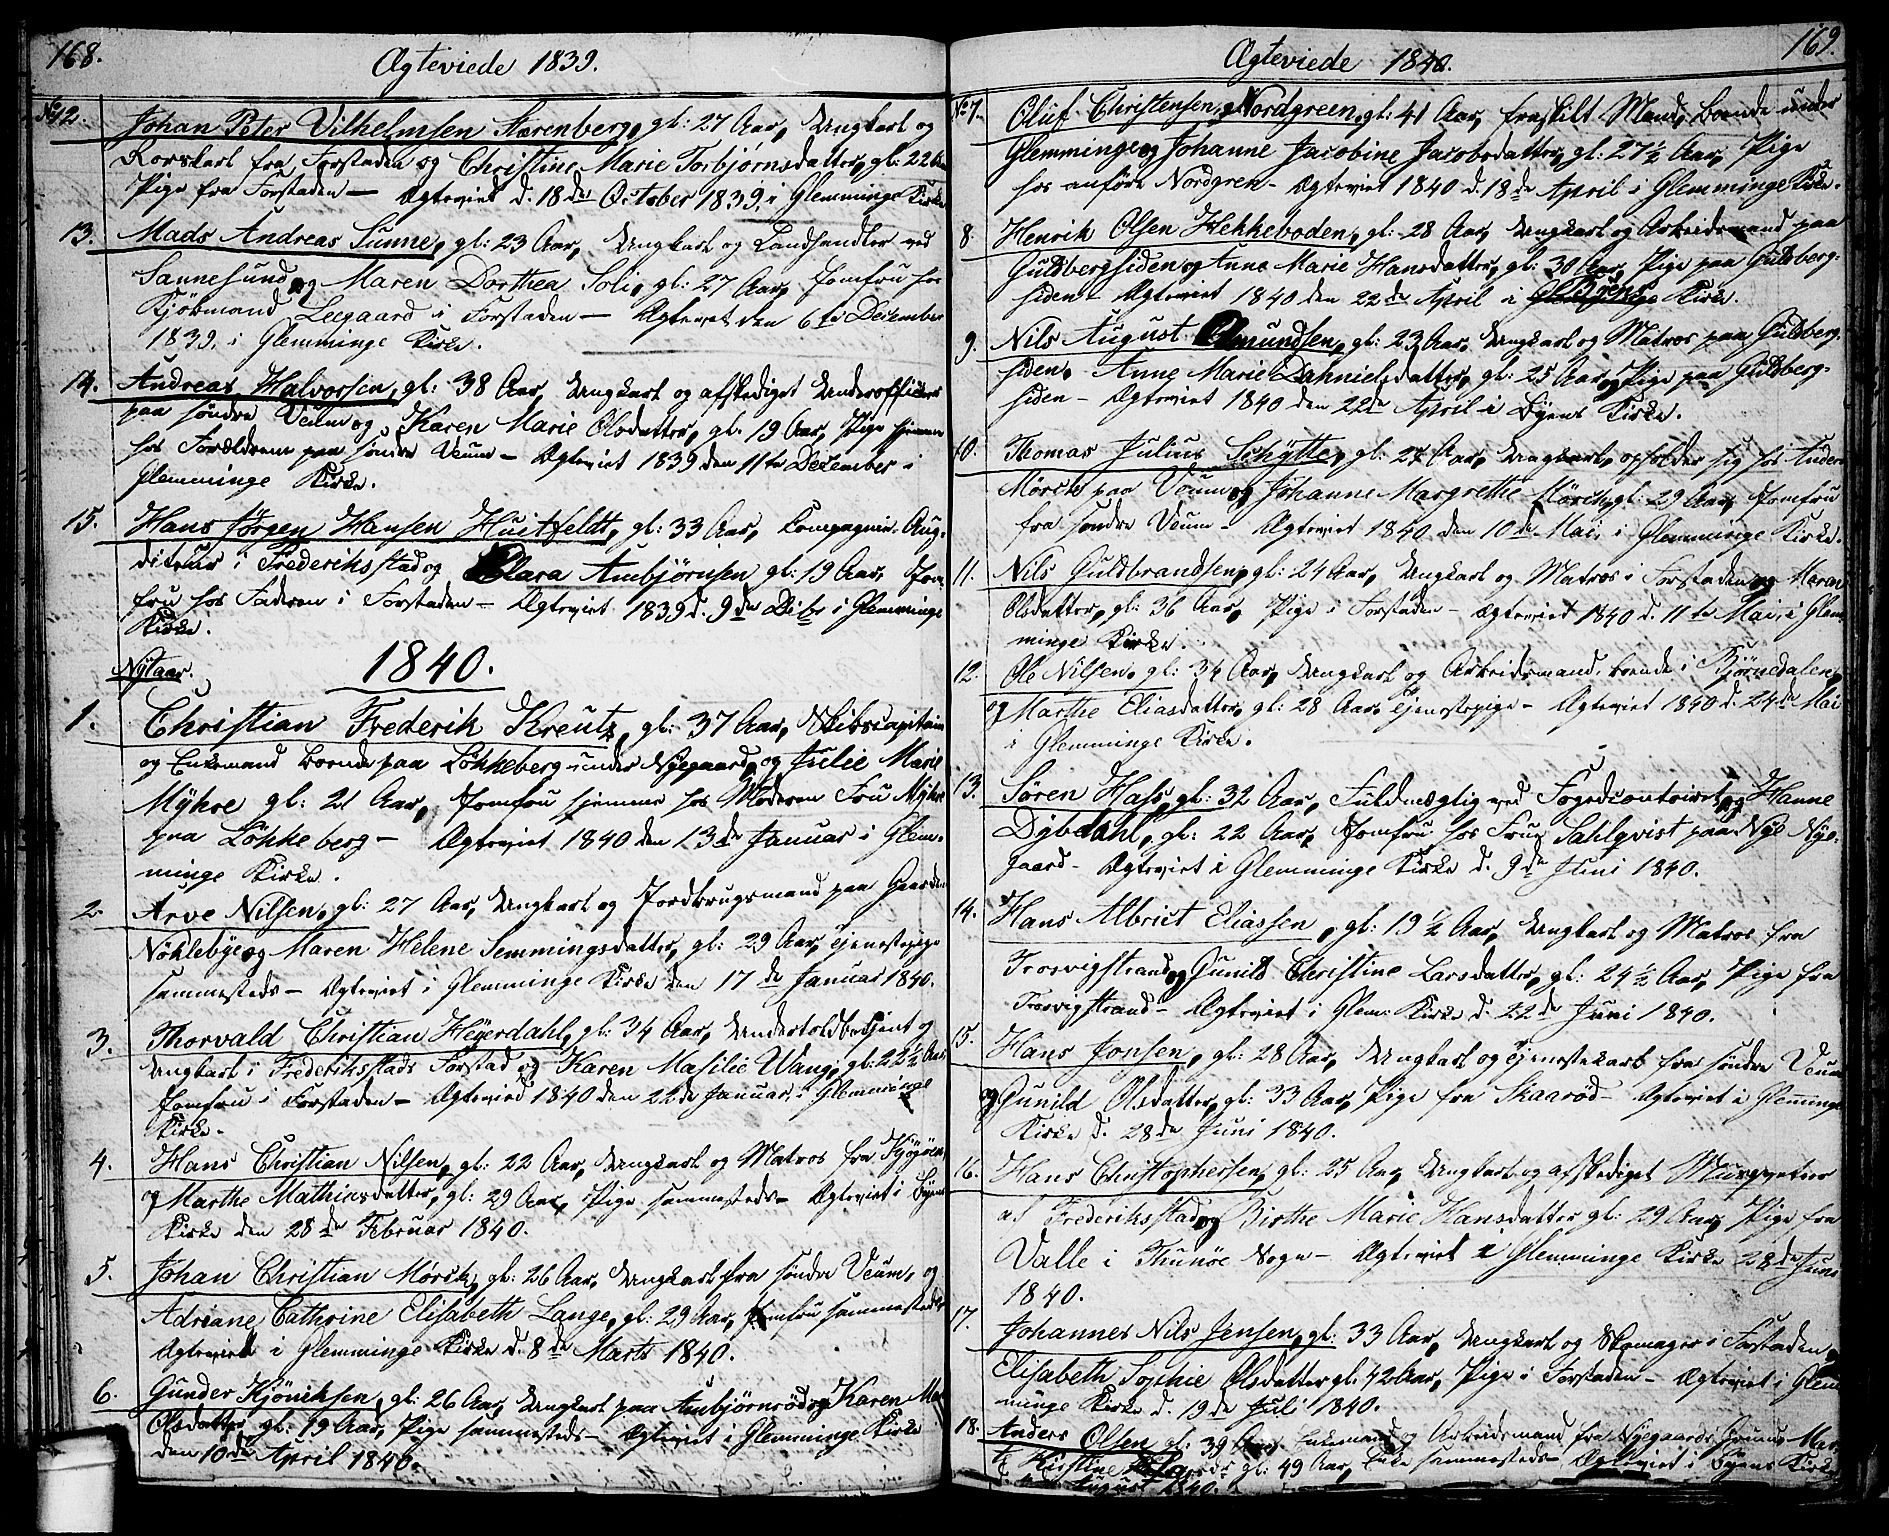 168.
Ægteviede 1839.
No 12. Johan Peter Vilhelmsen Starenberg, gl: 27 Aar, Ungkarl og
Rorskarl fra Forstaden og Christine Marie Torbjørnsdatter, gl: 22 Aar
Pige fra Forstaden — Ægteviet d. 18de October 1839, i Glemminge Kirke
13. Mads Andreas Sunne, gl: 23 Aar, Ungkarl og Landhandler ved
Sannesund og Maren Dorthea Soli, gl: 27 Aar, Jomfru hos
Kjøbmand Leegaard i Forstaden — Ægteviet den 6te December
1839, i Glemminge Kirke.
14. Andreas Halvorsen, gl: 38 Aar, Ungkarl og afskediget Underofficier
paa søndre Veum og Karen Marie Olsdatter, gl. 19 Aar, Pige hjemme
hos Forældrene paa søndre Veum — Ægteviet 1839 den 11te December i
Glemminge Kirke.
15. Hans Jørgen Hansen Huitfeldt, gl: 33 Aar, Compagnie-Aug-
diteur i Frederiksstad og Clara Ambjørnsen gl: 19 Aar, Jom-
fru hos Faderen i Forstaden — Ægteviet 1839 d. 9de Dcbr i Glemminge
Kirke.
Nytaar. 1840.
1. Christian Frederik Kreutz, gl: 37 Aar, Skibscapitain
og Enkemand boende paa Løkkeberg under Nygaard, og Julie Marie
Myhre gl: 21 Aar, Jomfru hjemme hos Moderen Fru Myhre
paa Løkkeberg — Ægteviet 1840 den 13de Januar i Glem-
minge Kirke.
2. Arve Nilsen, gl: 27 Aar, Ungkarl og Jordbrugsmand paa Gaarden
Nøklebye og Maren Helene Semmingsdatter, gl: 29 Aar, Tjenestepige
sammesteds — Ægteviet i Glemminge Kirke den 17de Januar 1840.
3. Thorvald Christian Heyerdahl, gl: 34 Aar, Undertoldbetjent og
Ungkarl i Frederiksstads Forstad og Karen Masilie Wang, gl: 22½ Aar
Jomfru i Forstaden — Ægteviet 1840 den 22de Januar, i Glemminge
Kirke.
4. Hans Christian Nilsen, gl: 22 Aar, Ungkarl og Matros fra
og Marthe Mathiasdatter, gl: 29 Aar, Pige sammesteds — Ægteviet i Byens
Kirke den 28de Februar 1840.
5. Johan Christian Mørck, gl: 26 Aar, Ungkarl fra søndre Veum, og
Adriane Cathrine Elisabeth Lange, gl: 29 Aar, Jomfru sammesteds
Ægteviet i Glemminge Kirke d. 8de Marts 1840.
6. Gunder Kjøniksen, gl: 26 Aar, Ungkarl paa Ambjørnrød og Karen
Olsdatter gl: 19 Aar, Pige sammesteds — Ægteviet i Glemminge Kirke
den 10de April 1840.
169.
Ægteviede 1840.
No 7. Oluf Christensen Nordgreen, gl: 41 Aar, fraskilt Mand, boende under
Glemminge og Johanne Jacobine Jacobsdatter, gl: 27½ Aar, Pige
hos anførte Nordgren — Ægteviet 1840 d. 18de April i Glemminge Kirke.
8. Henrik Olsen Hekkeboden, gl: 28 Aar, Ungkarl og Arbeidsmand paa
Guldbergsiden og Anne Marie Hansdatter, gl: 30 Aar, Pige paa Guldberg-
siden — Ægteviet 1840 den 22de April i Byens Kirke.
9. Nils August Amundsen, gl: 23 Aar, Ungkarl og Matros paa Guldberg-
siden. Anne Marie Dahnielsdatter, gl: 25 Aar, Pige paa Guldberg-
siden — Ægteviet 1840 den 22de April i Byens Kirke.
10. Thomas Julius Schytte, gl: 27 Aar, Ungkarl, opholder sig hos Anders
Mørck paa Veum og Johanne Margrethe Mørck, gl: 29 Aar, Jomfru
fra søndre Veum — Ægteviet 1840 den 10de Mai, i Glemminge Kirke.
11. Nils Guldbrandsen, gl: 24 Aar, Ungkarl og Matros i Forstaden og Maren
Olsdatter, gl: 36 Aar, Pige i Forstaden — Ægteviet 1840 d. 11te Mai, i Glem-
minge Kirke.
12. Ole Nilsen, gl: 34 Aar, Ungkarl og Arbeidsmand, boende i Bjørnedalen,
og Marthe Eliasdatter, gl: 28 Aar, Tjenestepige — Ægteviet 1840 d. 24de Mai
i Glemminge Kirke.
13. Søren Hass, gl: 32 Aar, Fuldmægtig ved Fogedcontoiret, og Hanne
Dybdahl, gl: 22 Aar, Jomfru hos Frue Sahlqvist paa Nye Nye-
gaard — Ægteviet i Glemminge Kirke d. 9de Juni 1840.
14. Hans Albrict Eliassen, gl: 19½ Aar, Ungkarl og Matros fra
Trosvigstrand og Gunild Christine Larsdatter, gl: 24½ Aar, Pige fra
Trosvigstrand — Ægteviet i Glem. Kirke d. 22de Juni 1840.
15. Hans Jonsen, gl: 28 Aar, Ungkarl og Tjenestekarl fra søndre Veum
og Gunild Olsdatter, gl: 33 Aar, Pige fra Skaarød — Ægteviet i Glemminge
Kirke d. 28de Juni 1840.
16. Hans Christophersen, gl: 25 Aar, Ungkarl og afskediget Musqveteer
af Frederiksstad og Birthe Marie Hansdatter gl: 29 Aar, Pige fra
Valle i Thunøe Sogn — Ægteviet i Glemminge Kirke 28de Juni
1840.
17. Johannes Nils Jensen, gl: 33 Aar, Ungkarl og Skomager i Forstaden,
Elisabeth Sophie Olsdatter gl: 42 Aar, Pige i Forstaden — Ægteviet i Glem-
minge Kirke d. 19de Juli 1840.
18. Anders Olsen, gl: 39 Aar, Enkemand og Arbeidsmand fra Nyegaards
Kirstine gl: 49 Aar, Enke sammesteds — Ægteviet i Byens Kirke
August 1840.